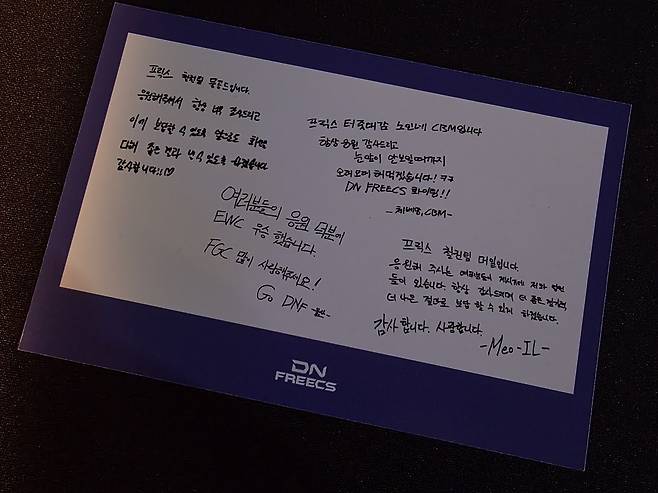 프릭스 철권팀 물골드입니다.
응원해주셔서 항상 너무 감사드리고
이에 보답할 수 있도록 앞으로도 화이팅
더 좋은 결과 낼 수 있도록 하겠습니다
감사합니다!!♡
프릭스 터줏대감 노인네 CBM입니다
항상 응원 감사드리고
눈앞이 안보일때까지
오래오래 해먹겠습니다! ㅋㅋ
DN FREECS 화이팅!!
-CBM-
여러분들의 응원 덕분에
EWC 우승 했습니다.
FGC 많이 사랑해주세요!
Go DNF
프릭스 철권팀 머일입니다.
응원해 주시는 여러분들이 계시기에 저와 팀원
들이 있습니다. 항상 감사드리며 더 좋은 경기력
더 나은 결과로 보답 할 수 있게 하겠습니다.
감사합니다. 사랑합니다.
-Meo-IL-
DN
FREECS